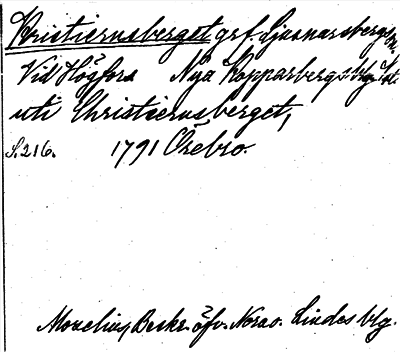 Kristiernsberget grf. Ljusnarsbergs
Vid Högfors Nya Kopparbergs
uti Christiernsberget,
S. 216. 1791 Örebro.
Moræus, Beskr. öfv. Nora o. Lindes blg.